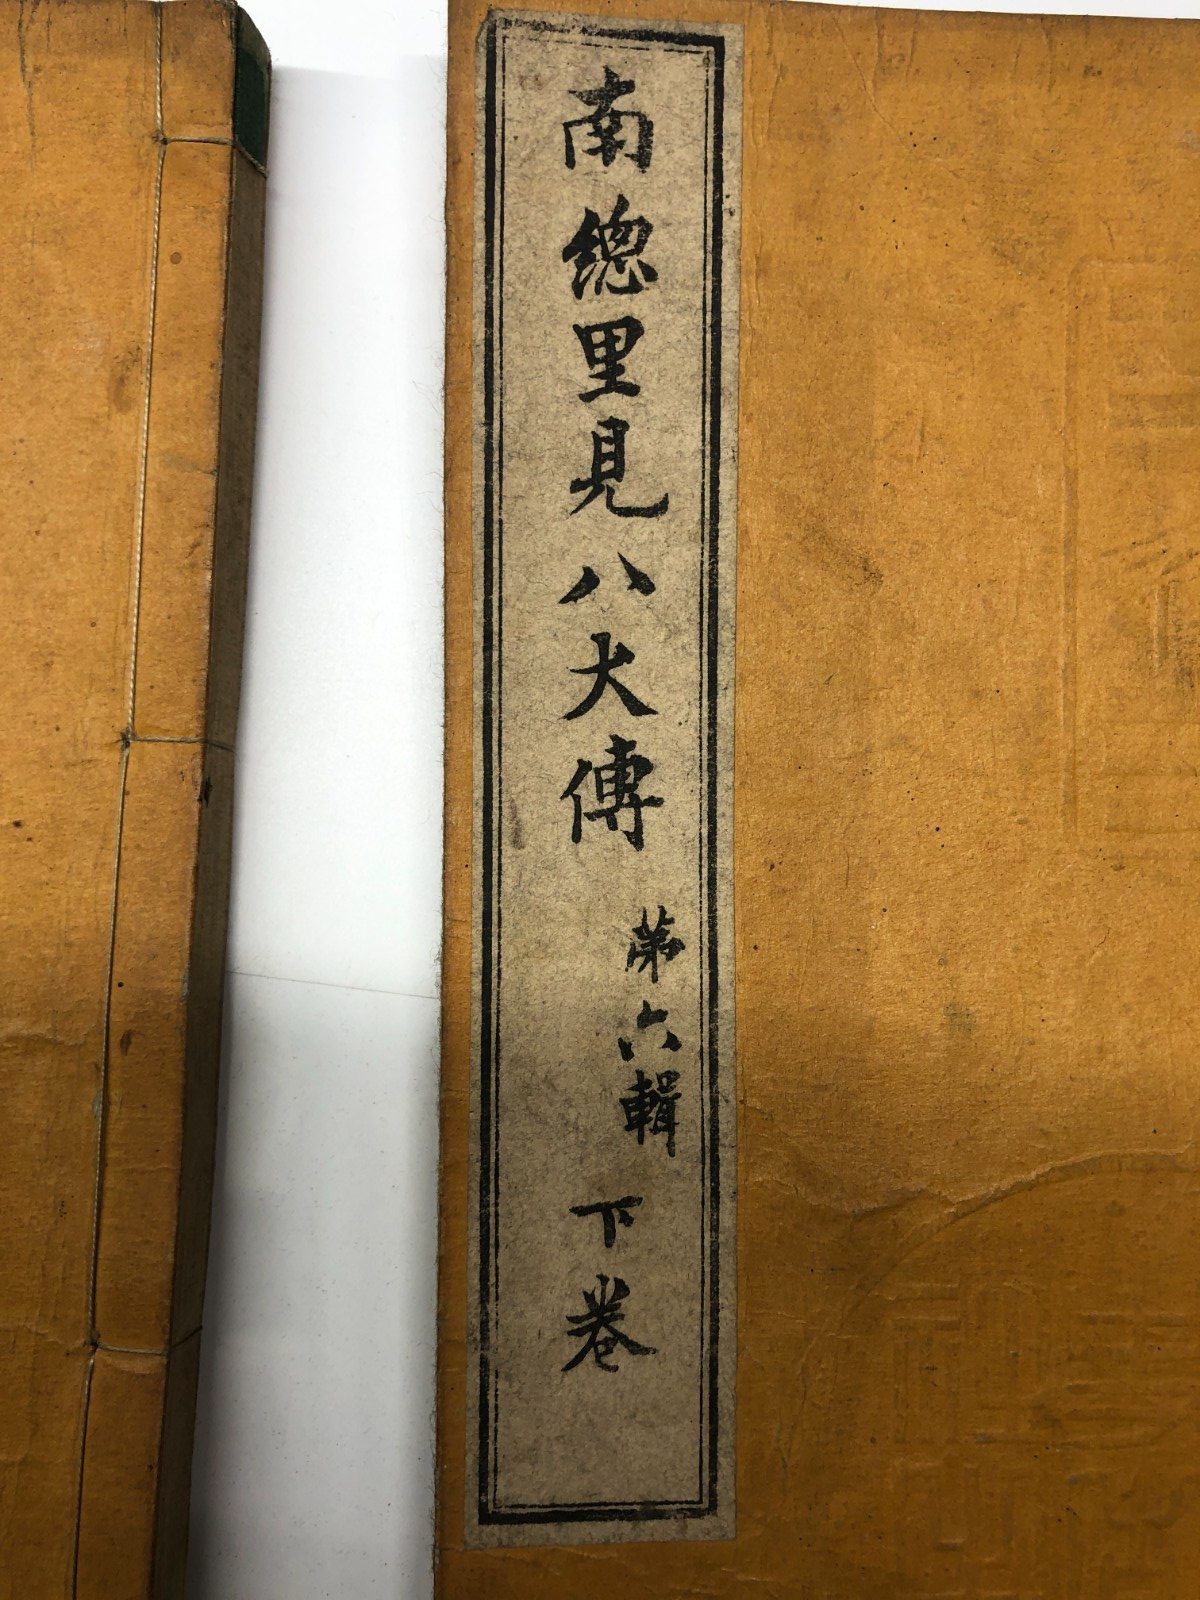 南總里見八犬傳
第六輯
下巻